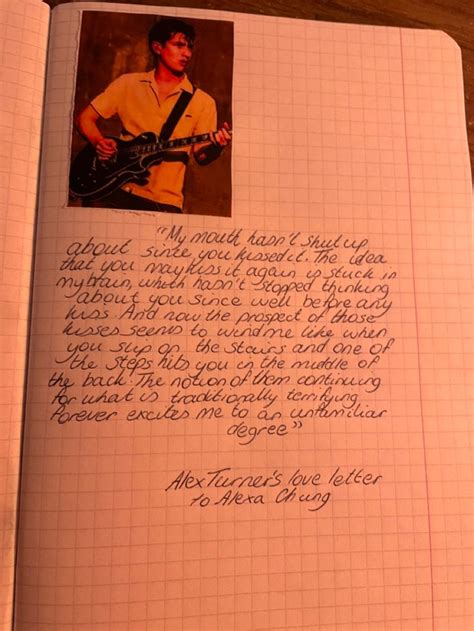 "My mouth hasn't shut up
about since you kissed it. The idea
that you may kiss it again is stuck in
my brain, which hasn't stopped thinking
about you since well before any
kiss. And now the prospect of those
kisses seems to wind me like when
you slip on the stairs and one of
the steps hits you in the middle of
the back. The notion of them continuing
for what is traditionally terrifying
forever excites me to an unfamiliar
degree"
Alex Turner's love letter
to Alexa Chung